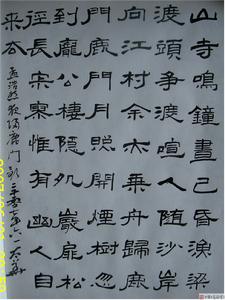 山寺鳴鐘晝已昏漁梁
渡頭爭渡喧人隨沙岸
向江村余亦乘舟歸鹿
門鹿門月照開煙樹忽
到龐公棲隱処巖扉松
徑長寂寥惟有幽人自
來去
孟浩然夜歸鹿門歌